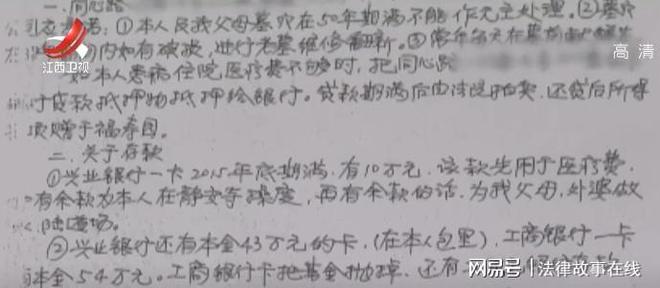 一. 同心路
江西卫视
高清
①本人及我父母墓穴在50年期满不能作无主处理。②墓穴
内如有破损,进行老墓维修翻新。③
本人患病住院医疗费不够时,把同心路
贷款抵押物抵押给银行。贷款期满后由法院拍卖,还贷后所得
款赠于福寿园。
二. 关于存款
①兴业银行一卡2015年底期满,有10万元,该款先用于医疗费,
有余款为本人在静安寺超度,再有余款的话,为我父母,外婆做
道场。
②兴业银行还有本金43万元的卡,(在本人包里),工商银行一卡
本金54万元。工商银行卡把基金抛掉,还有
网易号 | 法律故事在线